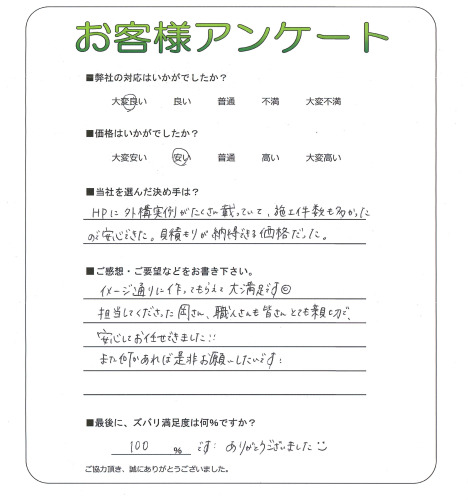 お客様アンケート
■弊社の対応はいかがでしたか？
大変良い 良い 普通 不満 大変不満
■価格はいかがでしたか？
大変安い 安い 普通 高い 大変高い
■当社を選んだ決め手は？
HPに外構実例がたくさん載っていて、施工件数も多かった
ので安心できた。見積もりが納得できる価格だった。
■ご感想・ご要望などをお書き下さい。
イメージ通りに作ってもらえて大満足です☺
担当してくださった岡さん、職人さんも皆さんとても親切で、
安心してお任せできました!!
また何かあれば是非お願いしたいです!
■最後に、ズバリ満足度は何％ですか？
100 % です! ありがとうございました☺
ご協力頂き、誠にありがとうございました。